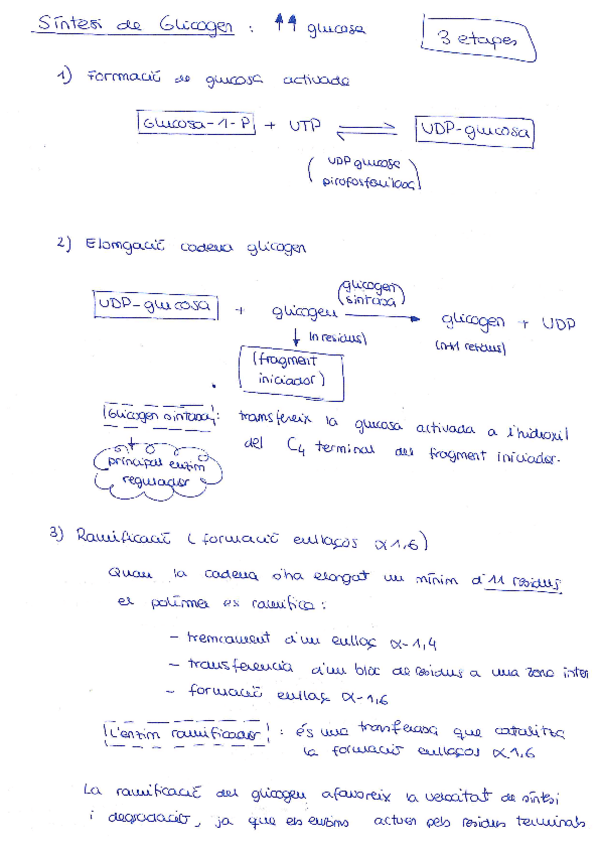 Síntesi de Glicogen : ↑↑ glucosa
3 etapes
1) Formació de glucosa activada
Glucosa-1-P + UTP ⇌ UDP-glucosa
(UDP glucosa
pirofosforilasa)
2) Elongació cadena glicogen
(glicogen
sintasa)
UDP-glucosa + glicogen → glicogen + UDP
↓ (n residus) (n+1 residus)
(fragment
iniciador)
Glicogen sintasa : transfereix la glucosa activada a l'hidroxil
del C4 terminal del fragment iniciador.
principal enzim
regulador
3) Ramificació (formació enllaços α1,6)
Quan la cadena s'ha elongat un mínim d'11 residus
el polímer es ramifica :
- trencament d'un enllaç α-1,4
- transferencia d'un bloc de residus a una zona inter
- formació enllaç α-1,6
L'enzim ramificador : és una transferasa que catalitza
la formació enllaços α1,6
La ramificació del glicogen afavoreix la velocitat de síntesi
i degradació, ja que els enzims actuen pels residus terminals